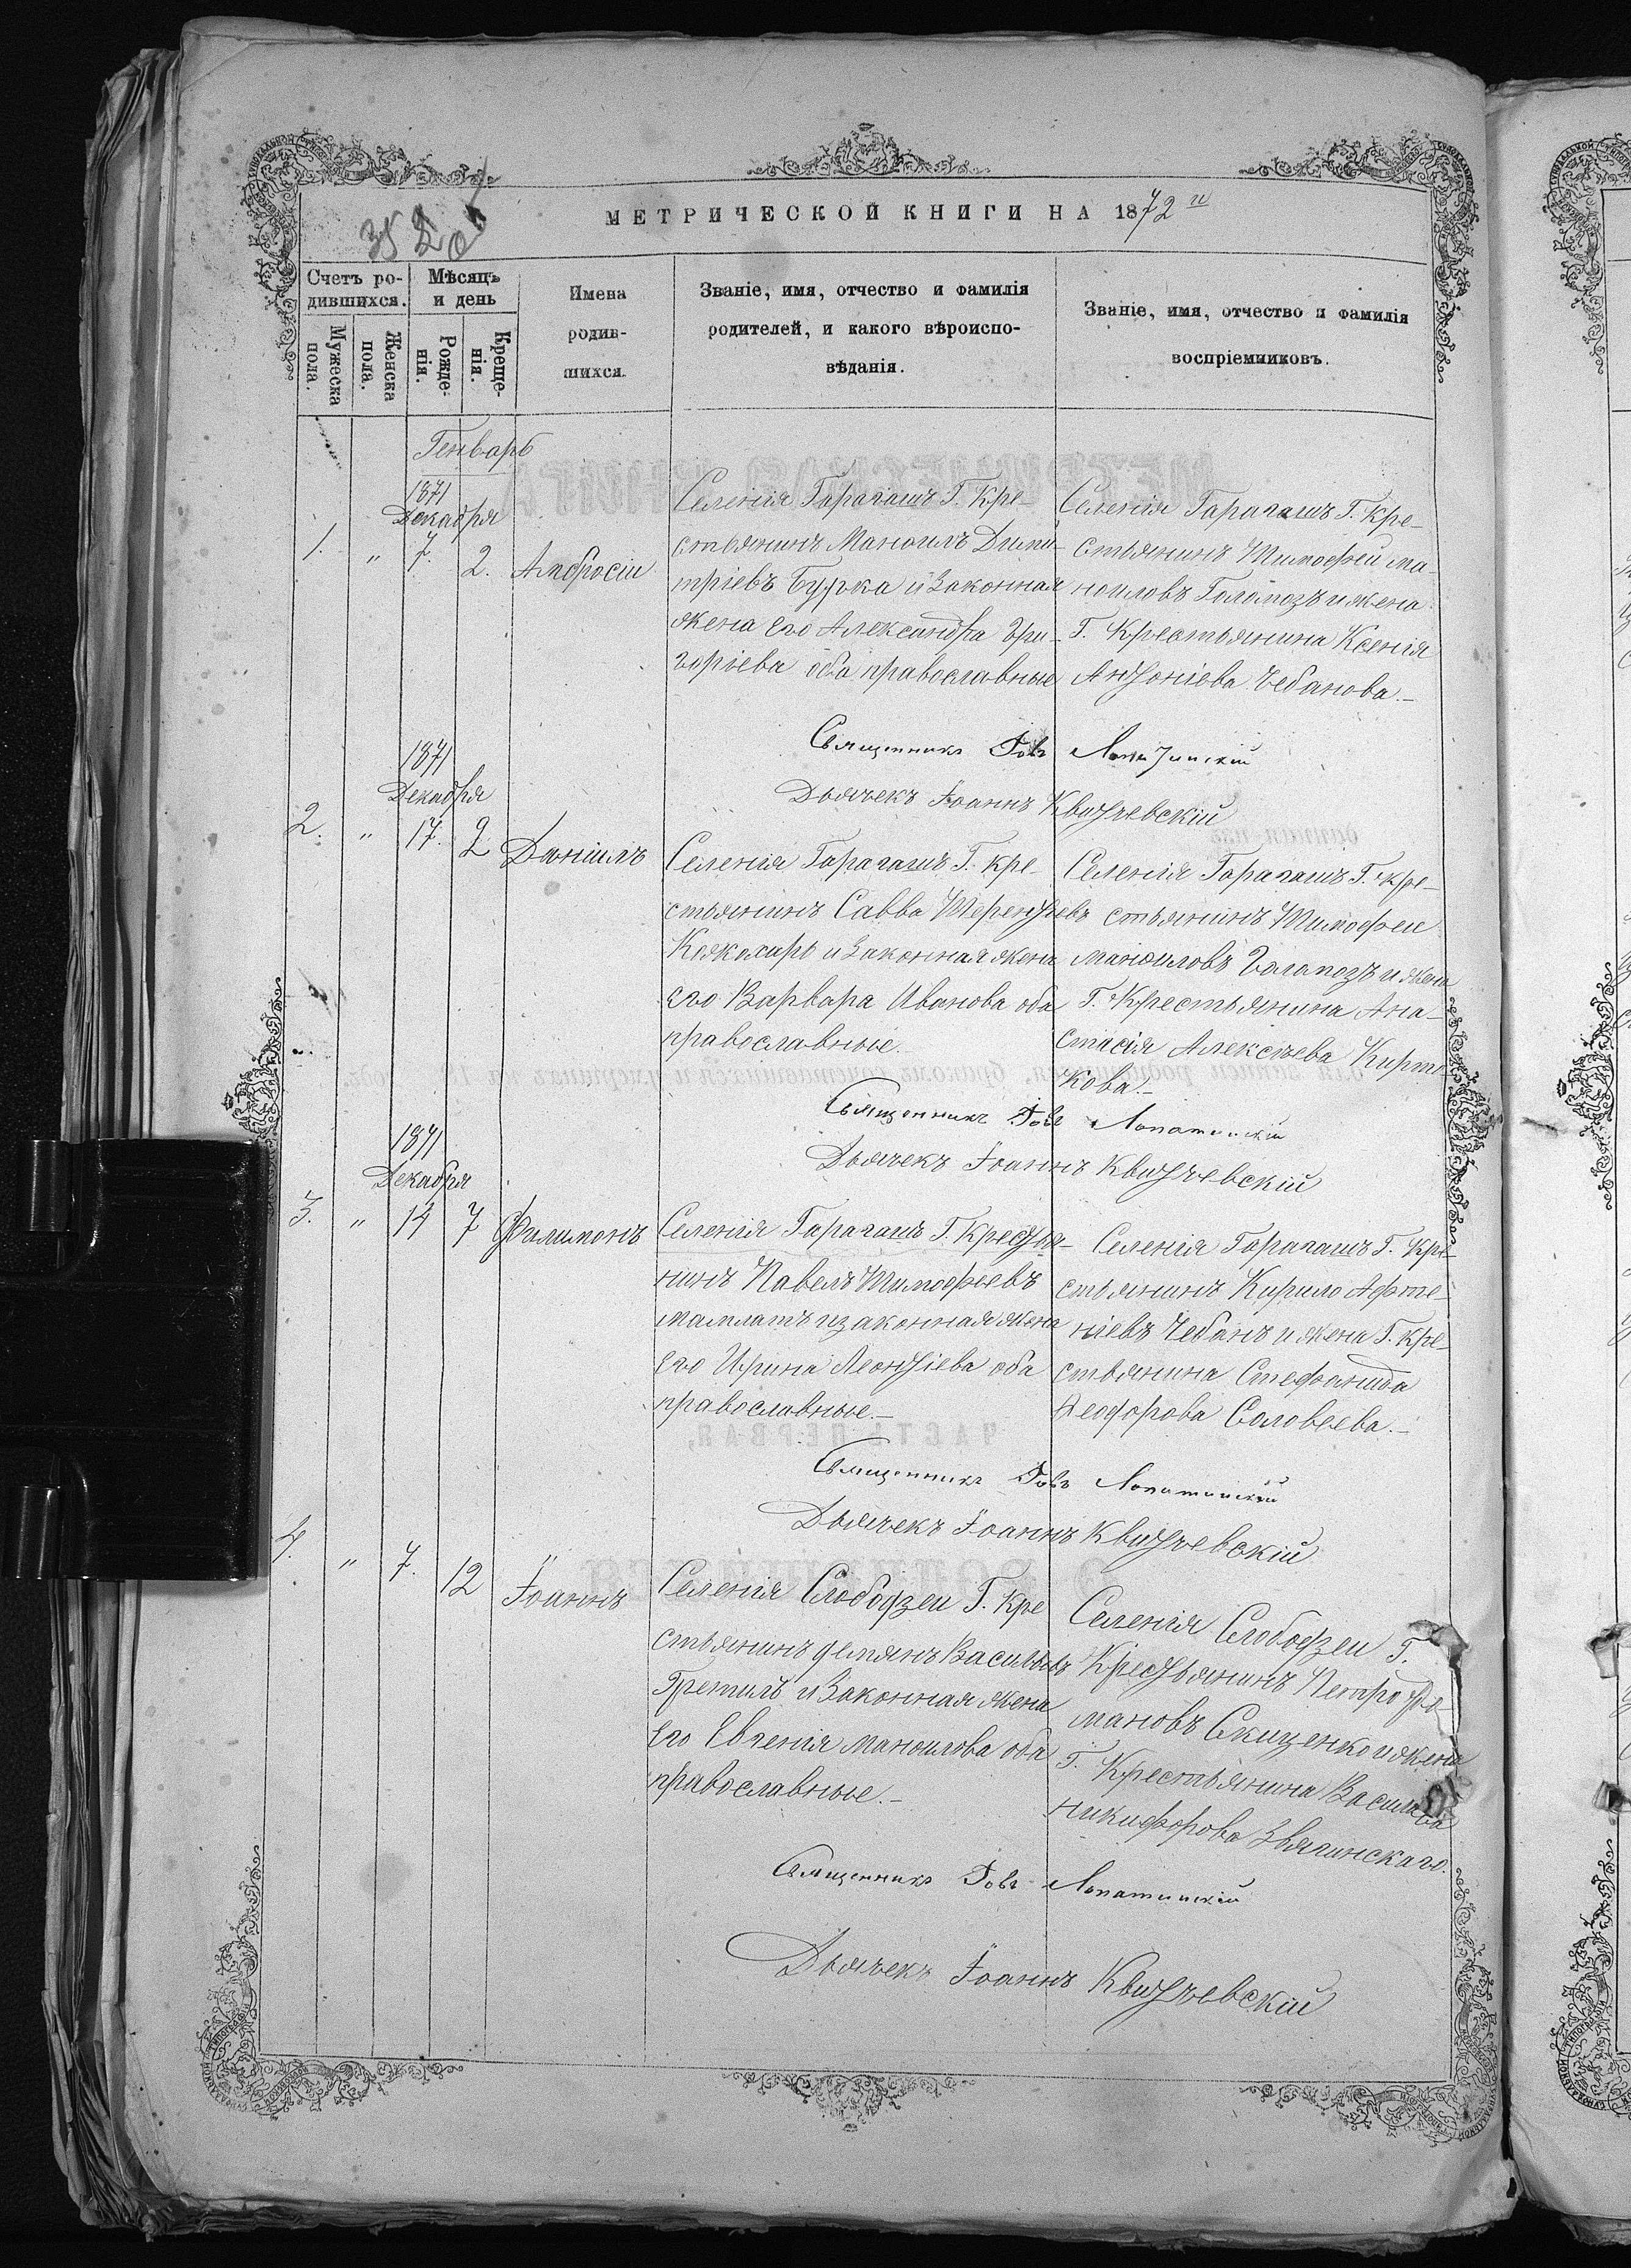 МЕТРИЧЕСКОЙ КНИГИ НА 1872 й
Счетъ ро-
дившихся.
Мужеска пола.
Женска пола.
Мѣсяцъ
и день
Рожде-
нія.
Креще-
нія.
Имена
родив-
шихся.
Званіе, имя, отчество и фамилія
родителей, и какого вѣроиспо-
вѣданія.
Званіе, имя, отчество и фамилія
воспріемниковъ.
Генварь
1871
Декабря
1. " 7. 2. Амбросій
Селенія Карагашъ Г. Кре-
стьянинъ Маноилъ Дими-
тріевъ Бурка и Законная
жена его Александра Гри-
горіева оба православные
Селенія Карагашъ Г. Кре-
стьянинъ Тимофей Ма-
ноиловъ Галамозъ и жена
Г. Крестьянина Ксенія
Антоніева Чебанова.-
Священникъ Іовъ Лопатинскій
Дьячекъ Іоаннъ Квитчевскій
1871
Декабря
2. " 17. 2 Даніилъ
Селенія Карагашъ Г. Кре-
стьянинъ Савва Терентьевъ
Кожохарь и Законная жена
его Варвара Иванова оба
православные
Селенія Карагашъ Г. Кре-
стьянинъ Тимофей
Маноиловъ Галамозъ и жена
Г. Крестьянина Ана-
стасія Алексѣева
кова.-
Священникъ Іовъ Лопатинскій
Дьячекъ Іоаннъ Квитчевскій
1871
Декабря
3. " 14 7 Филимонъ
Селенія Карагашъ Г. Крестья-
нинъ Павелъ Тимофеевъ
Мамлатъ и законная жена
его Ирина Леонтіева оба
православные.-
Селенія Карагашъ Г. Кре-
стьянинъ Кирило Афте-
ніевъ Чебанъ и жена Г. Кре-
стьянина Стефанида
Феодорова Соловьева.-
Священникъ Іовъ Лопатинскій
Дьячекъ Іоаннъ Квитчевскій
4. " 7. 12 Іоаннъ
Селенія Слободзеи Г. Кре
стьянинъ Демянъ Васильевъ
Гремиль и Законная жена
его Евгенія Маноилова оба
православные.-
Селенія Слободзеи Г.
Крестьянинъ Петро Ро-
мановъ Скиценко и жена
Г. Крестьянина
Никифорова Звягинскаго.
Священникъ Іовъ Лопатинскій
Дьячекъ Іоаннъ Квитчевскій